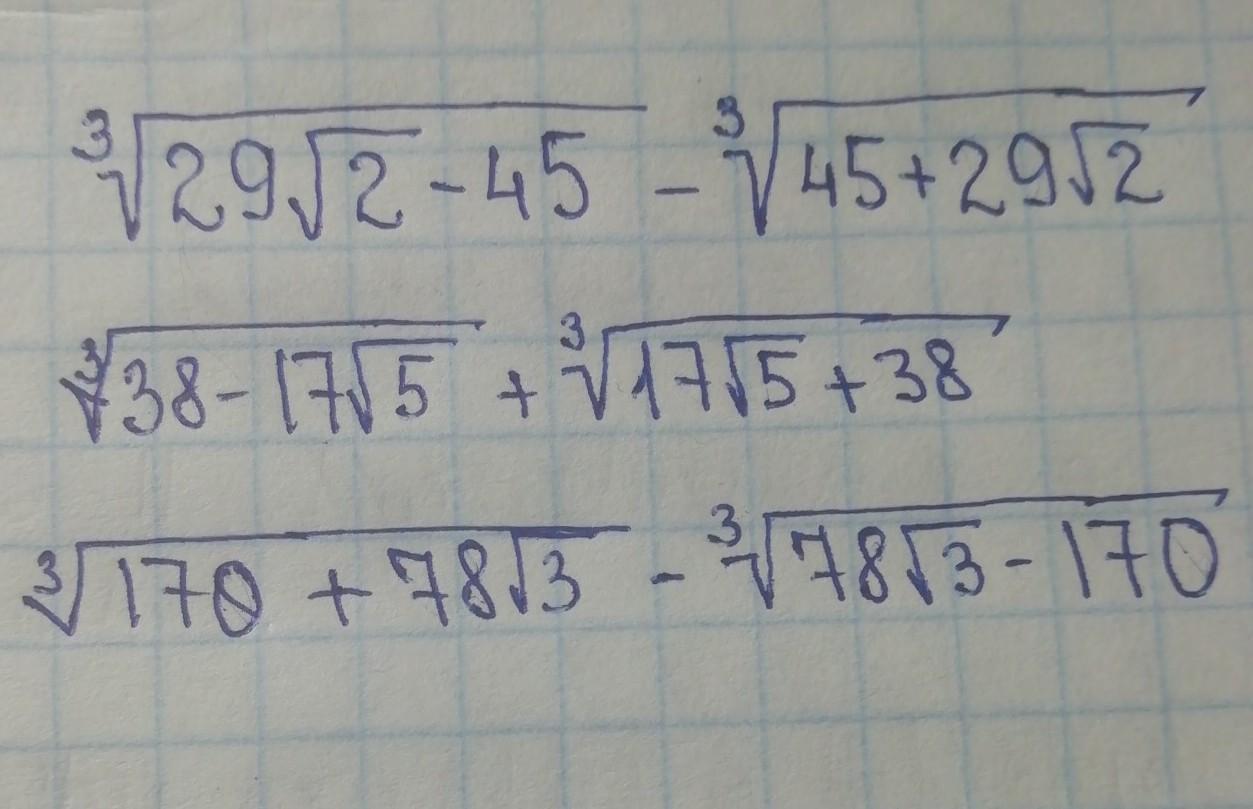 ∛(29√2 - 45) - ∛(45 + 29√2)
∛(38 - 17√5) + ∛(17√5 + 38)
∛(170 + 78√3) - ∛(78√3 - 170)